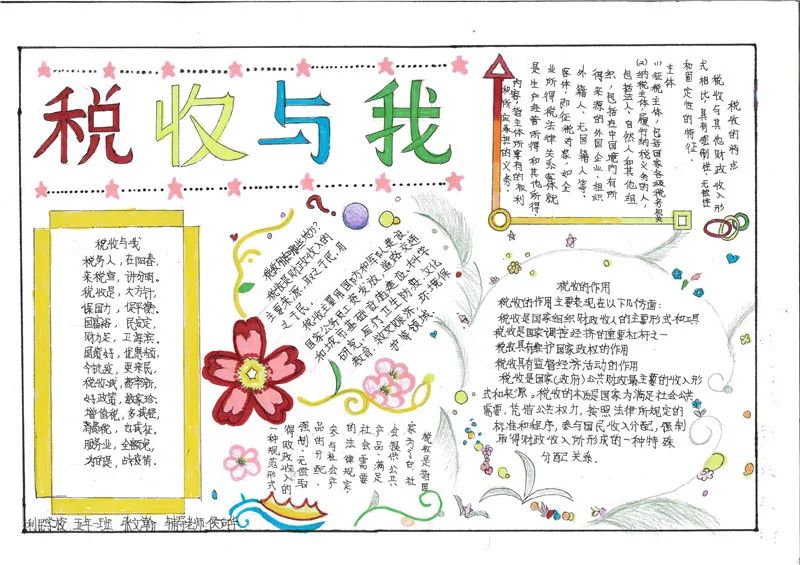 税收与我
税收与我
税务人，在阳春，
来税宣，讲勿雨。
税收是，大方针，
保国力，促平衡。
国富裕，民安定，
财力足，卫海疆。
国策好，优惠顿，
今抗疫，更亲民，
税收减，费率新，
好政策，数家珍：
增值税，多减轻，
所得税，也减征。
服务业，全概免，
为的是，战疫情。
税收用在哪些地方？
税收是财政收入的
主要来源，取之于民，用
之于民。
税收主要用国防和军队建设
国家公务员工资发放、道路交通
和城市基础设施建设、科学
研究、医疗卫生防疫、文化
教育、救灾赈济、环境保
护等领域
税收的特点
税收与其他财政收入形
式相比，具有强制性、无偿性
和固定性的特征
主体
(1)征税主体，包括国家各级税务机关
(2)纳税主体，履行纳税义务的人，
包括法人、自然人和其他组
织，包括在中国境内有所
得来源的外国企业、组织
外籍人、无国籍人等。
客体，即征税对象，如企
业所得税法律关系客体就
是生产经营所得和其他所得
内容，指主体所享有的权利
和所应承担的义务。
税收的作用
税收的作用主要表现在以下几方面：
税收是国家组织财政收入的主要形式和工具
税收是国家调控经济的重要杠杆之一
税收具有维护国家政权的作用
税收具有监督经济活动的作用
税收是国家(政府)公共财政最主要的收入形
式和来源。税收的本质是国家为满足社会公共
需要，凭借公共权力，按照法律所规定的
标准和程序，参与国民收入分配，强制
取得财政收入所形成的一种特殊
分配关系.
税收是指国
家为了向社
会提供公共
产品、满足
社会需要
的法律规定，
参与社会产
品的分配、
强制、无偿取
得财政收入的
一种规范形式
利民学校 五年一班 张文瀚 辅导老师:侯向华